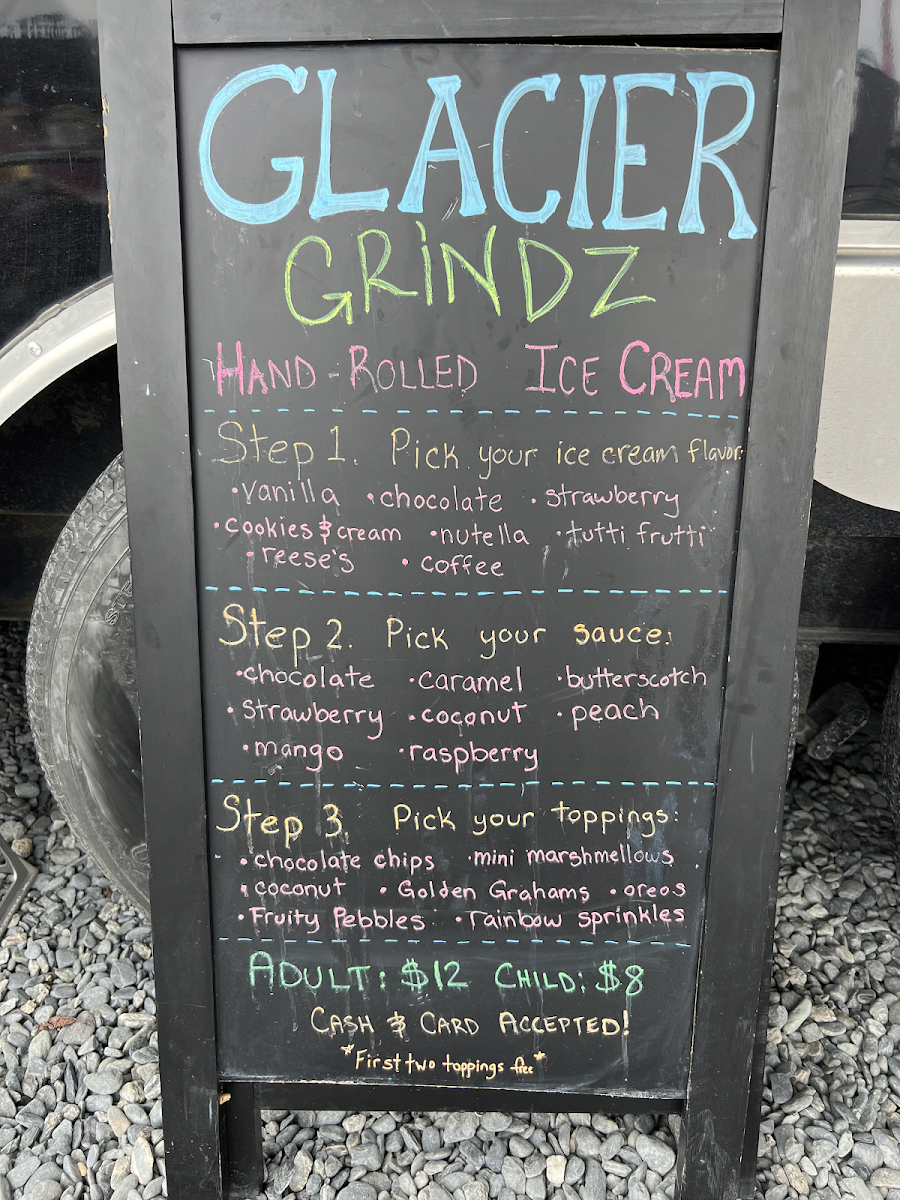 GLACIER
GRiNDZ
HAND-ROLLED ICE CREAM
Step 1. Pick your ice cream flavor:
•vanilla •chocolate •strawberry
•cookies & cream •nutella •tutti frutti
•reese's •coffee
Step 2. Pick your sauce:
•chocolate •caramel •butterscotch
•strawberry •coconut •peach
•mango •raspberry
Step 3. Pick your toppings:
•chocolate chips •mini marshmellows
•coconut •Golden Grahams •oreos
•Fruity Pebbles •rainbow sprinkles
ADULT: $12 CHILD: $8
CASH & CARD ACCEPTED!
*First two toppings free*